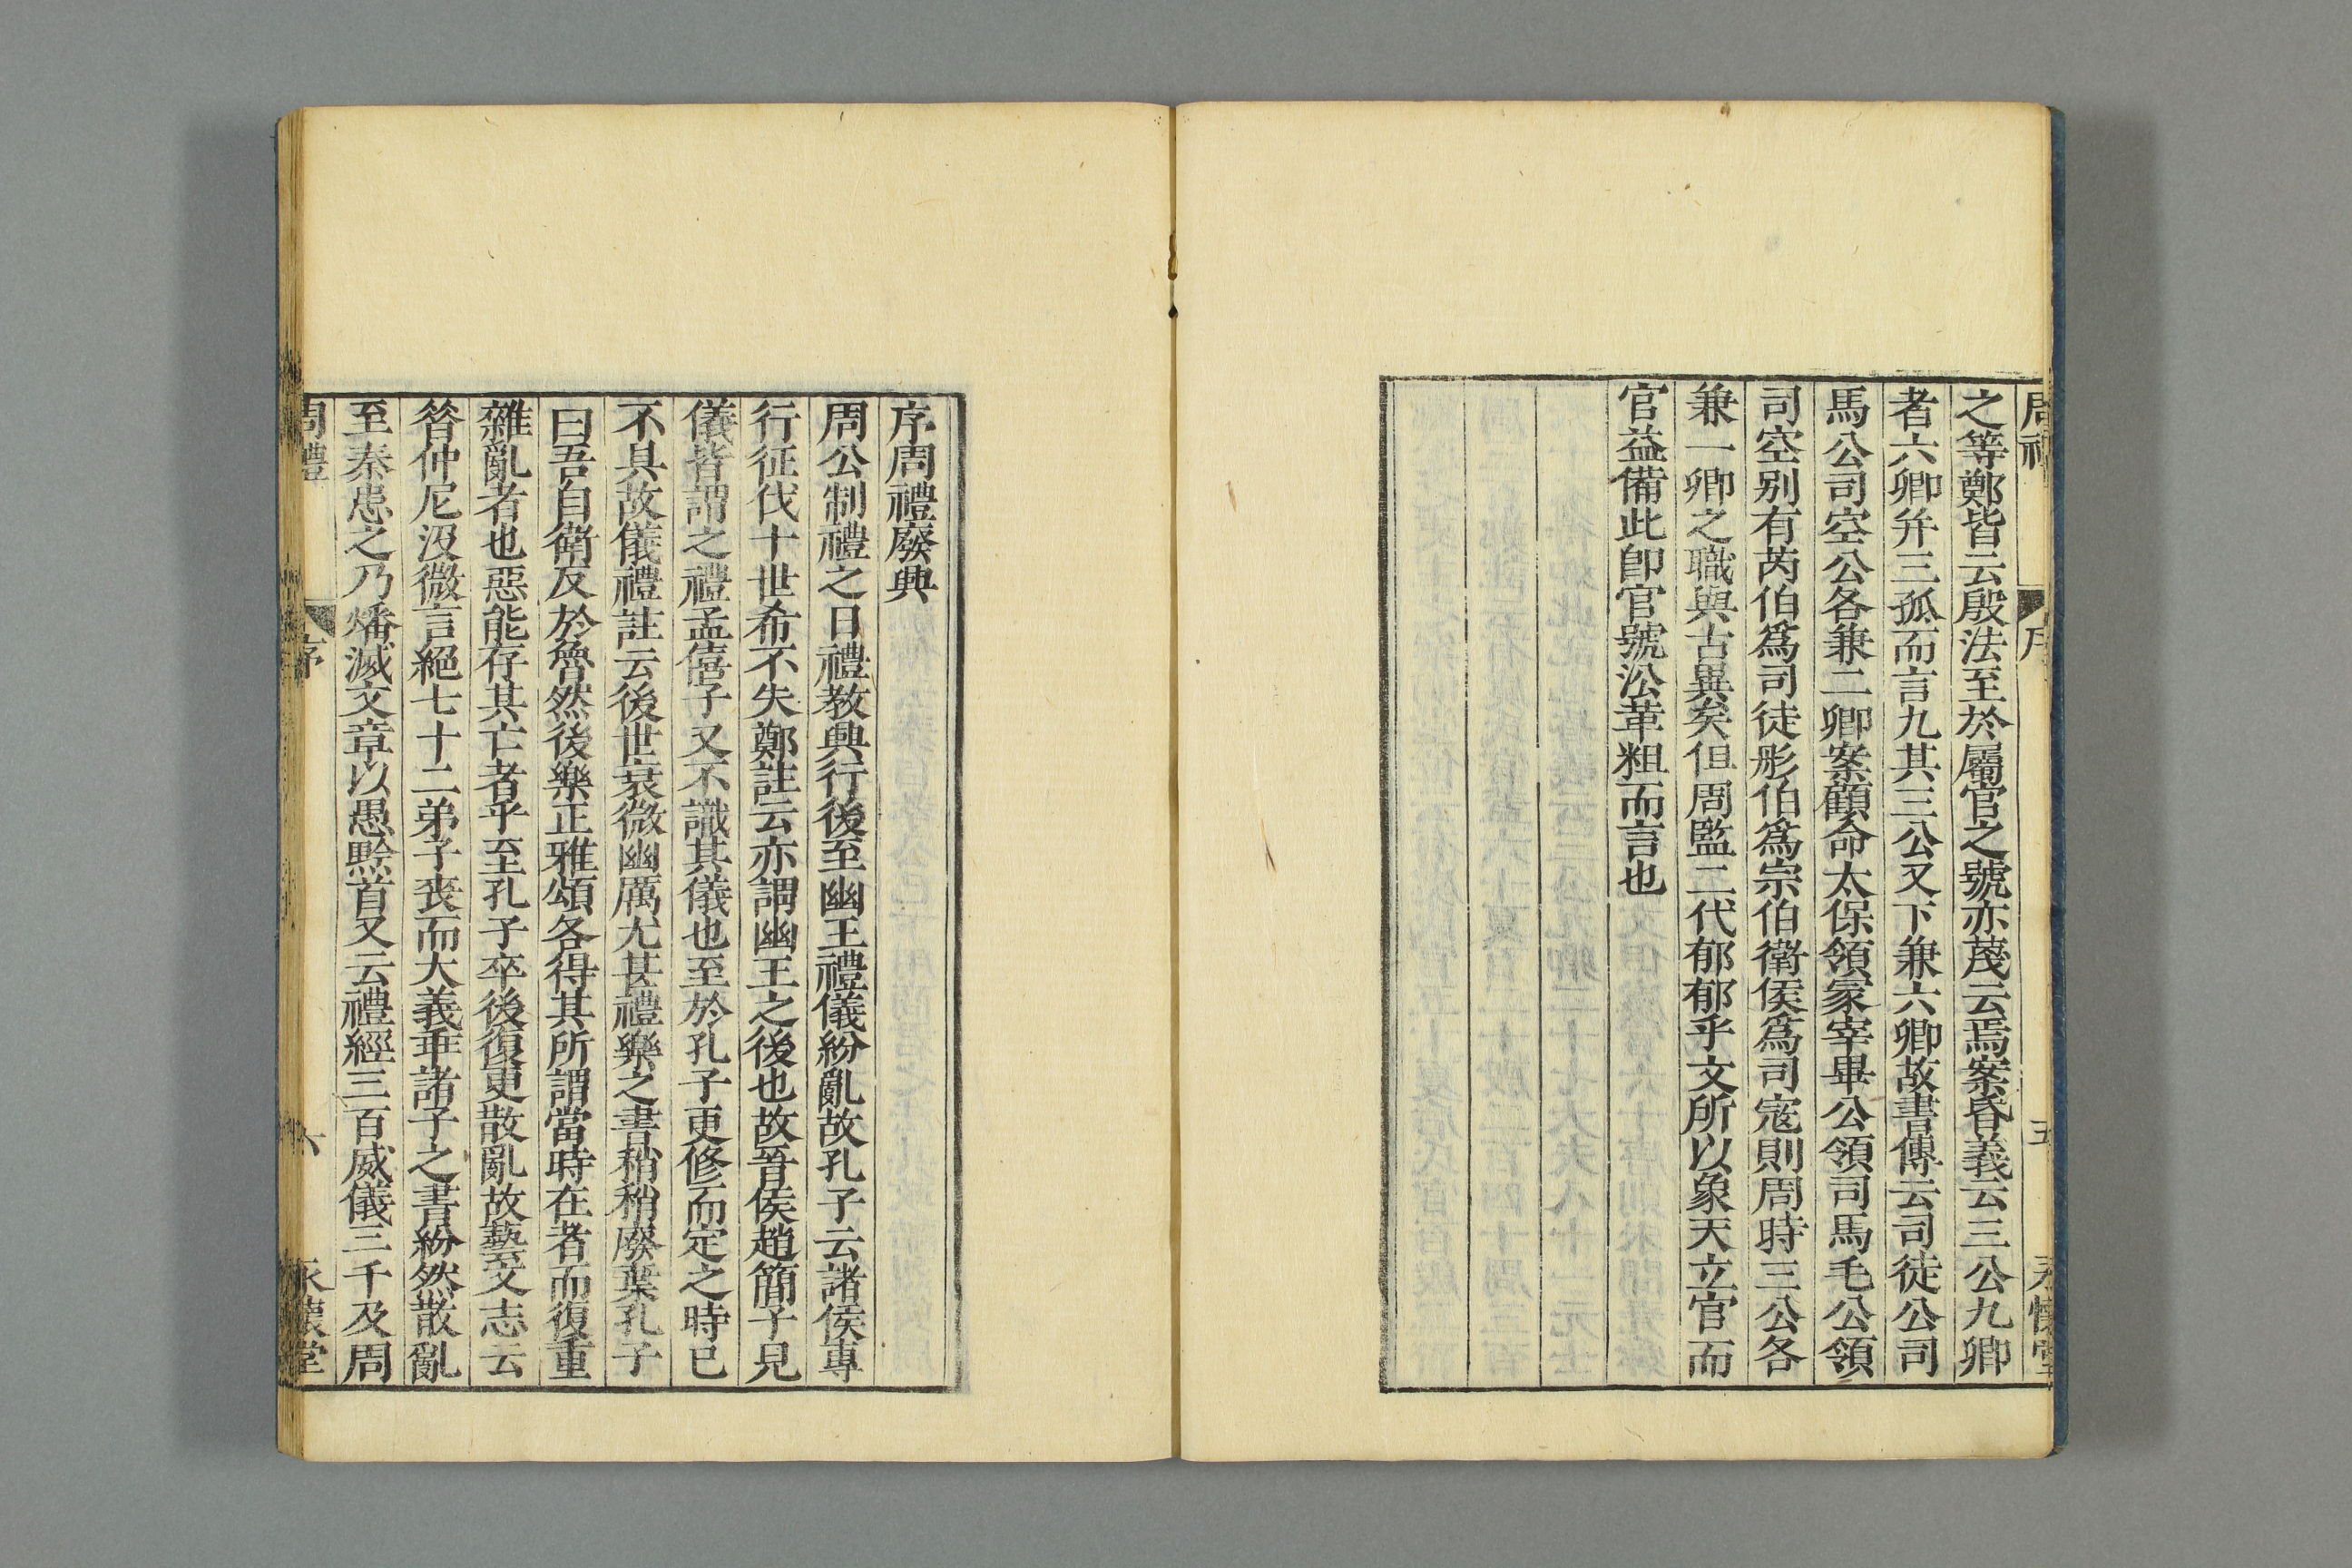 周禮 序 五 永懷堂
之等鄭皆云殷法至於屬官之號亦蔑云焉案昏義云三公九卿
者六卿并三孤而言九其三公又下兼六卿故書傳云司徒公司
馬公司空公各兼二卿案顧命太保領冢宰畢公領司馬毛公領
司空别有芮伯爲司徒彤伯爲宗伯衛侯爲司寇則周時三公各
兼一卿之職與古異矣但周監二代郁郁乎文所以象天立官而
官益備此卽官號沿革粗而言也
序周禮廢興
周公制禮之日禮教興行後至幽王禮儀紛亂故孔子云諸侯專
行征伐十世希不失鄭註云亦謂幽王之後也故晉侯趙簡子見
儀皆謂之禮孟僖子又不識其儀也至於孔子更修而定之時已
不具故儀禮註云後世衰微幽厲尤甚禮樂之書稍稍廢棄孔子
曰吾自衛反於魯然後樂正雅頌各得其所謂當時在者而復重
雜亂者也惡能存其亡者乎至孔子卒後復更散亂故藝文志云
昝仲尼沒微言絕七十二弟子喪而大義乖諸子之書紛然散亂
至秦患之乃燔滅文章以愚黔首又云禮經三百威儀三千及周
周禮 序 六 永懷堂